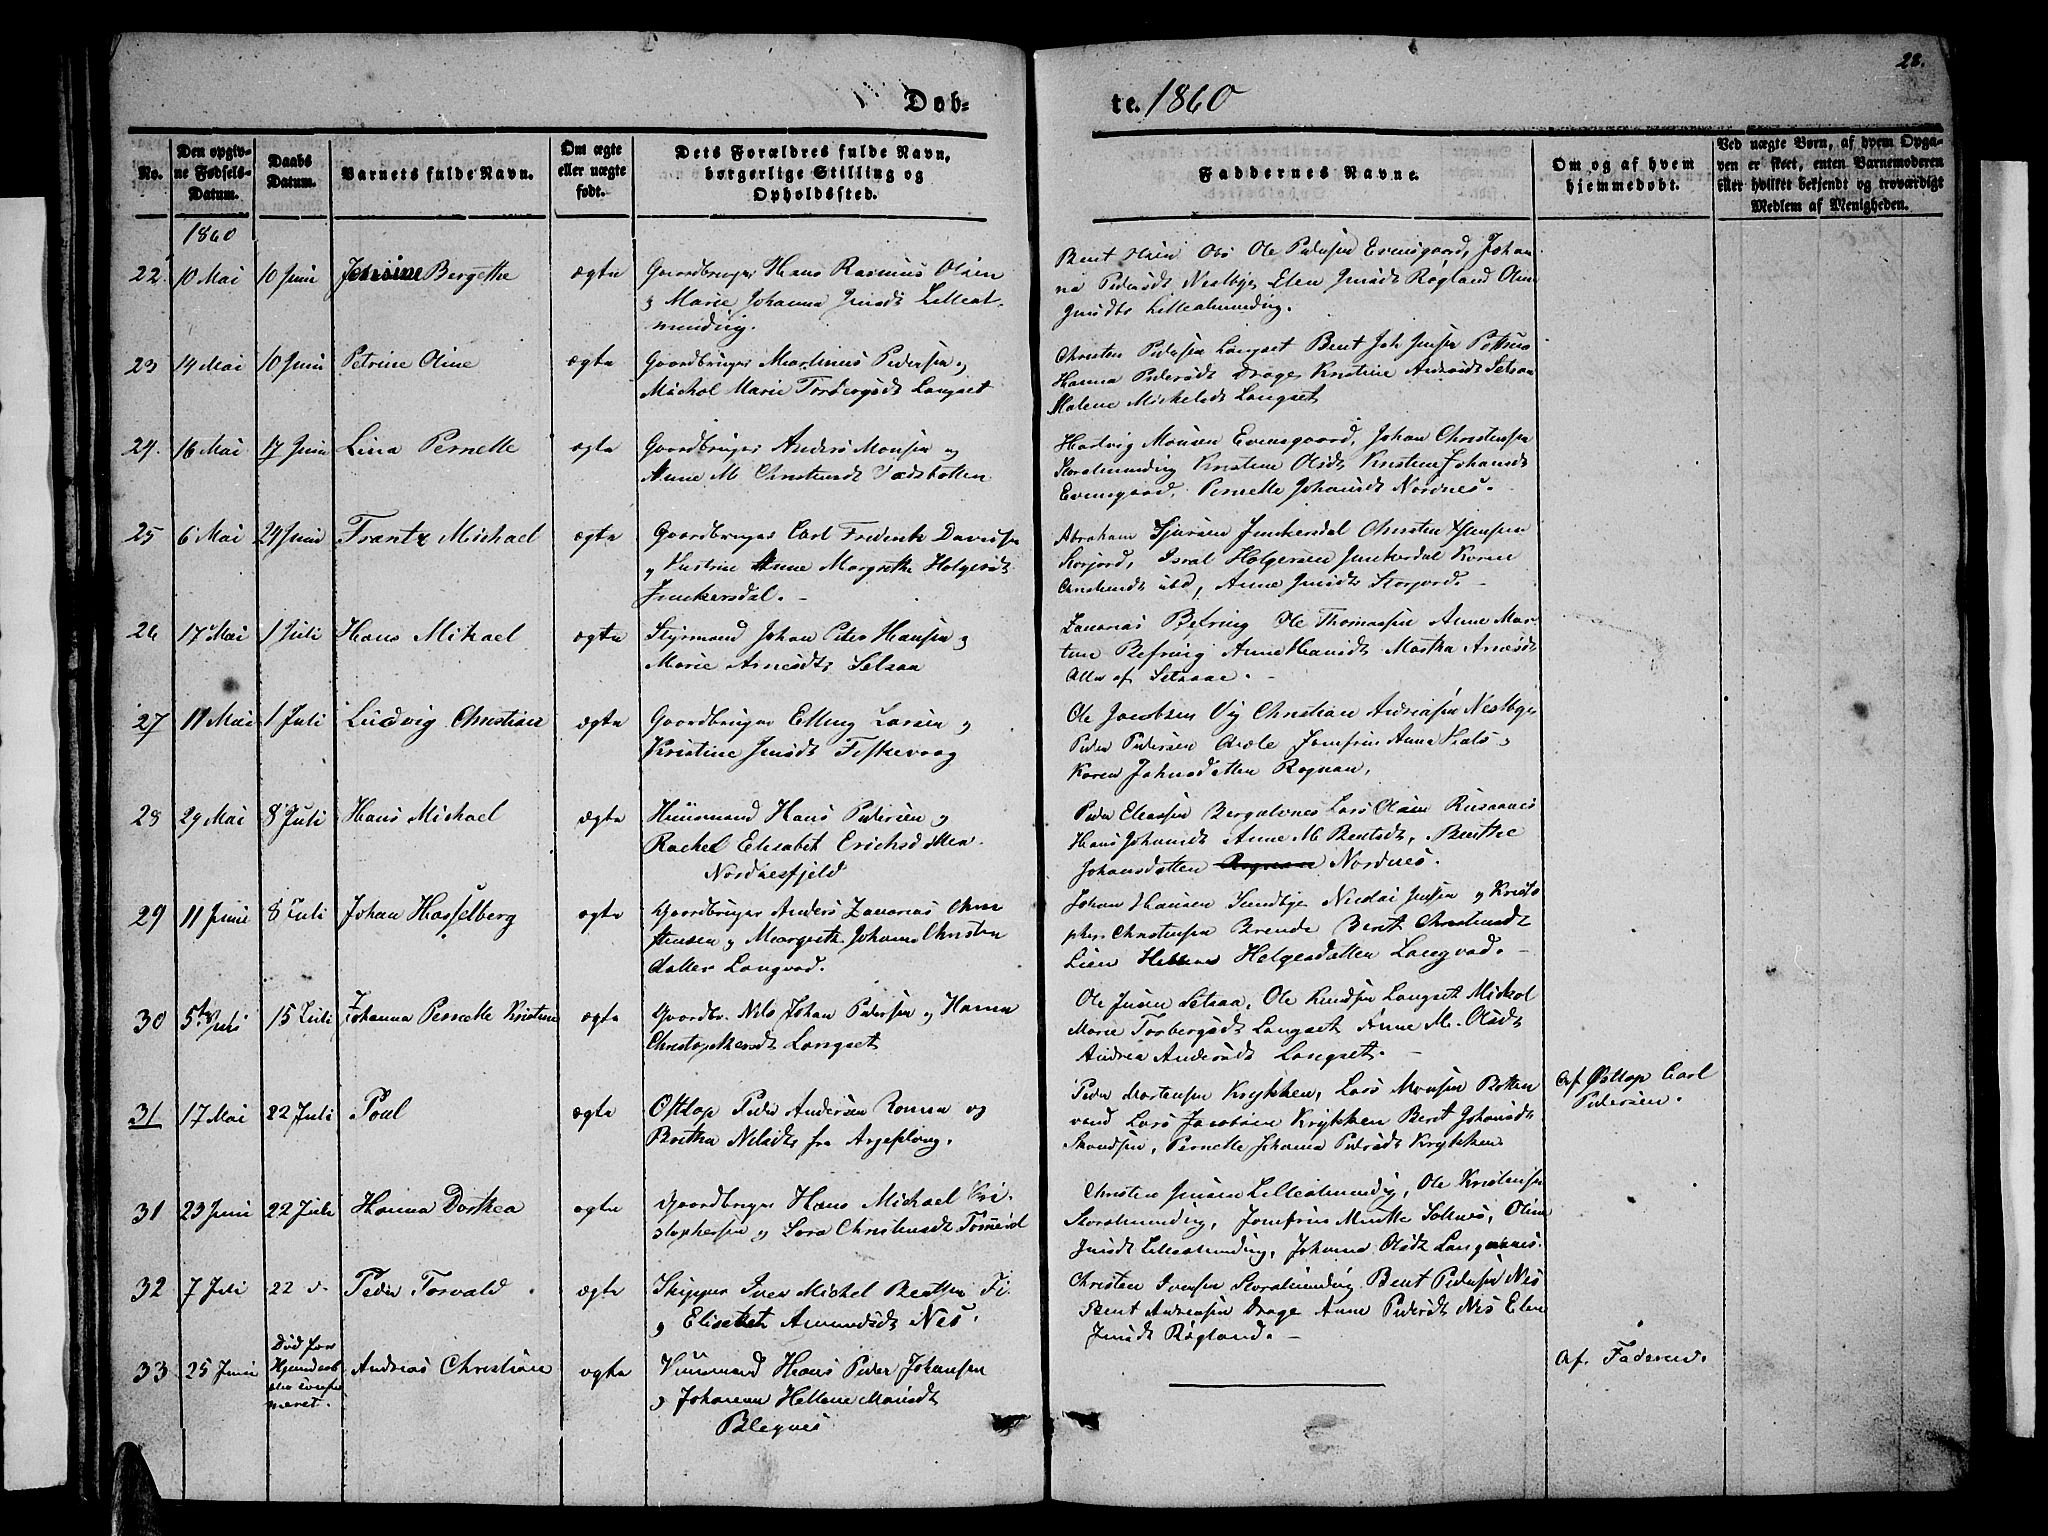 28.
Døb=
te. 1860
No.
Den opgiv-
ne Fødsels-
Datum.
Daabs
Datum.
Barnets fulde Navn.
Om ægte
eller uægte
født.
Dets Forældres fulde Navn,
borgerlige Stilling og
Opholdssted.
Faddernes Navne.
Om og af hvem
hjemmedøbt.
Ved uægte Børn, af hvem Opga-
ven er skeet, enten Barnemoderen
eller hvilket bekjendt og troværdigt
Medlem af Menigheden.
1860
22 10 Mai 10 Juni Bergethe ægte Gaardbruger Hans Rasmus Olsen
og Marie Johanna Jensdt Lilleal-
mending.
Ole Pedersen Evensgaard, Johan-
na Pedersdt Nestby, Elen Jensdt Røgland
Jensdtr Lillealmending.
23 14 Mai 10 Juni Petrine Oline ægte Gaardbruger Martinus Pedersen og
Michol Marie Torbergsdt Langset
Christen Pedersen Langset Bent Joh Jensen
Hanna Pedersdt Drage, Kristine Andersdt Setsaa
Malene Mickelsdt Langset
24. 16 Mai 17 Juni Lina Pernelle ægte Gaardbruger Anders Monsen og
Anne M Christensdt Vadsbotten
Hartvig Monsen Evensgaard, Johan Christensen
Storalmending Kristine Olsdt Kristine Johansdt
Evensgaard, Pernelle Johansdt Nordnes.
25 6 Mai 24 Juni Frantz Michael ægte Gaardbruger Carl Frederik Davidsen
og Hustrue Anne Margrethe Holgersdt
Junkersdal.
Abraham Sjursen Junkersdal Christen Hansen
Storjord, Isral Holgersen Junkerdal Karen
Christensdt ibd, Anne Jensdt Storjord.
26 17 Mai 1 Juli Hans Mikael ægte Styrmand Johan Peter Hansen og
Marie Arnesdt Setsaa
Zakarias Befring Ole Thomassen Anne Mar-
tine Befring Anne Hansdt Martha Arnesdt
Alle af Setsaae.
27 11 Mai 1 Juli Ludvig Christian ægte Gaardbruger Elling Larsen og
Kristine Jensdt Fiskevaag
Ole Jacobsen Vig Christian Andreasen Nestby
Peder Pedersen Jomfru Anna
Karen Johnsdatter Rognan,
28 29 Mai 8 Juli Hans Michael ægte Huusmand Hans Pedersen og
Rachel Elisabet Erichsdatter
Nordnesfjeld
Peder Eliassen Bergulvnes Lars Olsen Rusaanes
Hans Johansdt Anne M. Bentsdt, Benthe
Johansdatter Rognan Nordnes.
29 11 Juni 8 Juli Johan Hasselberg ægte Gaardbruger Anders Zakarias Chri
stensen og Margrethe Johanna Christen
datter Langvad.
Johan Hansen Sundby Nicolai Jensen og Kristo
pher Christensen Brende Berit Christensdt
Lien Hellene Holgersdatter Langvad.
30 5te Juli 15 Juli Johanna Pernelle Kristine ægte Gaardbr. Nils Johan Pedersen og Hanna
Christophersdt Langset
Ole Jensen Setsaa, Ole Knudsen Langset Mickol
Marie Torbergsdt Langset Anne M. Olsdt
Andrea Andersdt Langset.
31 17 Mai 22 Juli Poul ægte Østlap Peder Andersen og
Britha Nilsdt fra Arjeplong.
Peder Mortensen Krykken, Lars Monsen Botten
vand Lars Jacobsen Krykken Beret Johansdt
Pernelle Johanna Pedersdt Krykken
Af Østlap Carl
Pedersen.
31 23 Juni 22 Juli Hanna Dorthea ægte Gaardbruger Hans Michael Kri-
stophersen og Lora Christensdt
Christen Jensen Lillealmending, Ole Kristensen
Storalmending, Jomfru Mentke Saltnes, Oline
Jensdt Lillealmending, Johanna Olsdt Langaanes.
32 7 Juli 22 d. Peder Torvald ægte Skipper Iver Michel Bentsen
og Elisabet Amundsdt Nes.
Christen Iversen Storalmending Bent Pedersen Nes
Bent Andreasen Drage Anne Pedersdt Nes Elen
Jensdt Røgland.
33 25 Juni Død før
Hjemmedøb
Andreas Christian ægte Huusmand Hans Peder Johansen
og Johanna Hellene Monsdt
Blegnes
Af Faderen.